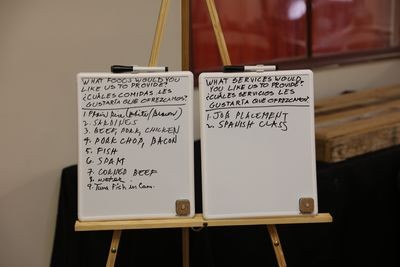 WHAT FOODS WOULD YOU
LIKE US TO PROVIDE?
¿CUÁLES COMIDAS LES
GUSTARÍA QUE OFREZCAMOS?
1. Plain Rice (White/Brown)
2. SARDINES
3. BEEF, PORK, CHICKEN
4. PORK CHOP, BACON
5. FISH
6. SPAM
7. CORNED BEEF
8. water
9. Tuna Fish in Can.
WHAT SERVICES WOULD
YOU LIKE US TO PROVIDE?
¿CUÁLES SERVICIOS LES
GUSTARÍA QUE OFREZCAMOS?
1. JOB PLACEMENT
2. SPANISH CLASS